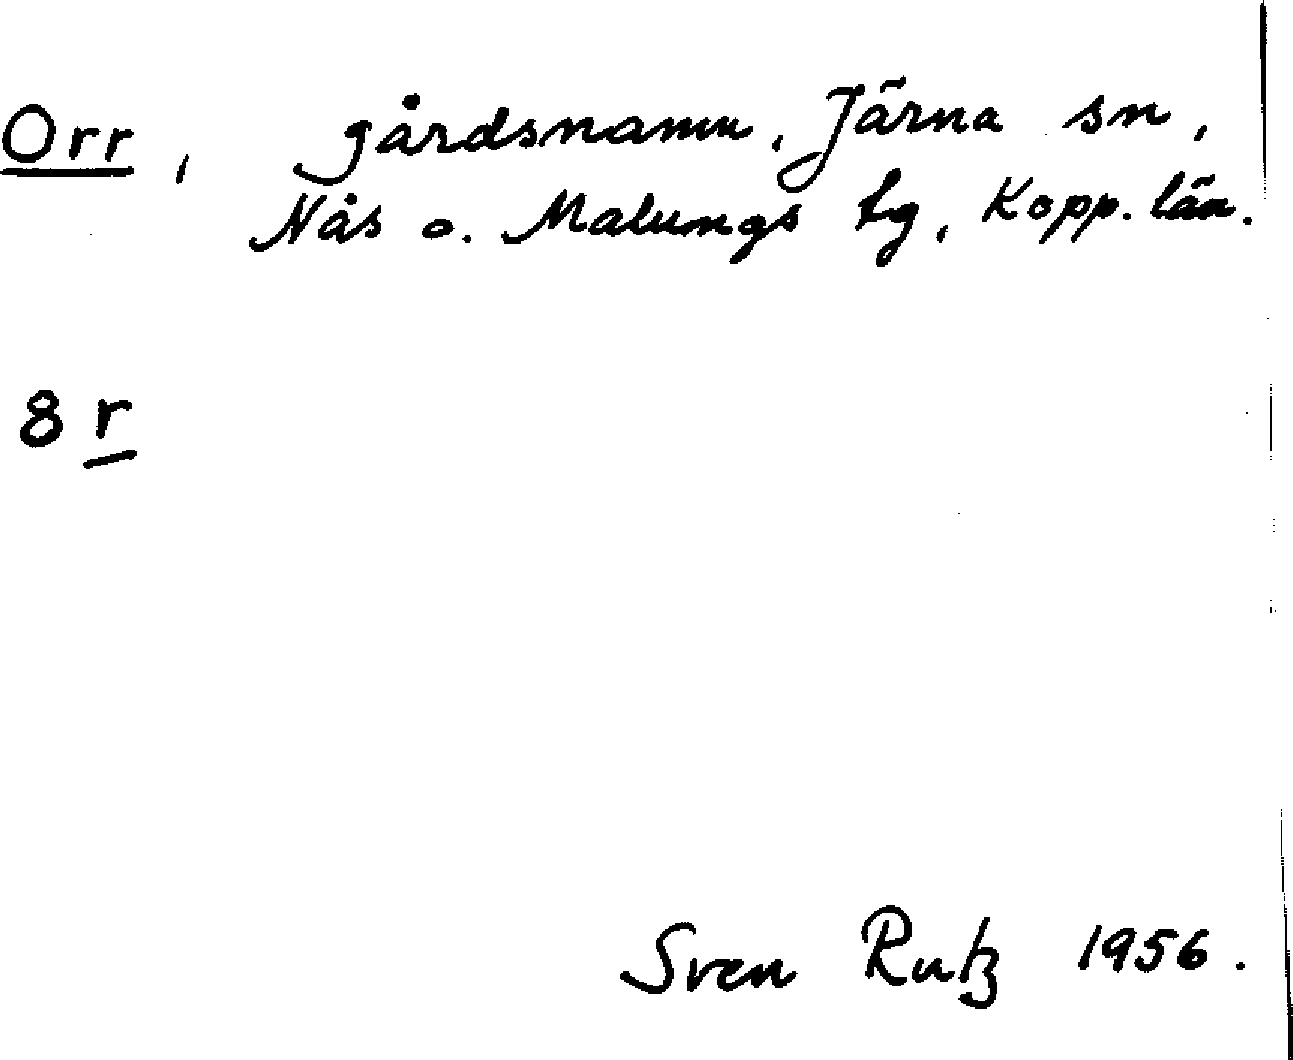 Orr, gårdsnamn, Järna sn,
Nås o. Malungs tg, Kopp. län.
8 r
Sven Rutz 1956.